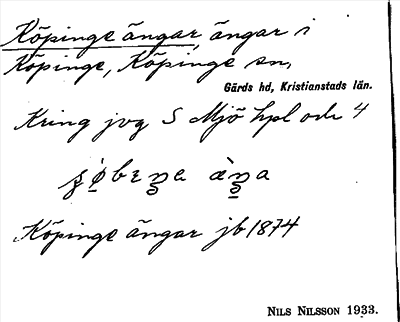 Köpinge ängar, ängar i
Köpinge, Köpinge sn,
Gärds hd, Kristianstads län.
Kring jvg S Mjö hpl och 4
Köpinge ängar jb 1874
NILS NILSSON 1933.